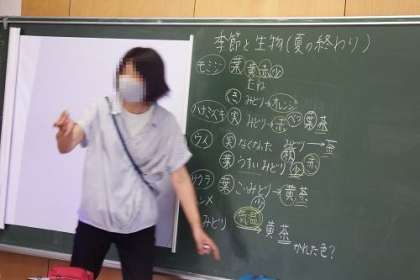 季節と生物(夏の終わり)
モミジ 葉 黄赤 少
たね
き みどり→オレンジ
ハナミズキ 実 みどり→赤 葉 茶
ウメ 実 なくなった みどり
葉 うすいみどり 少 赤
サクラ 葉 こいみどり→黄茶
少
みどり 気温→黄茶
かれた色?